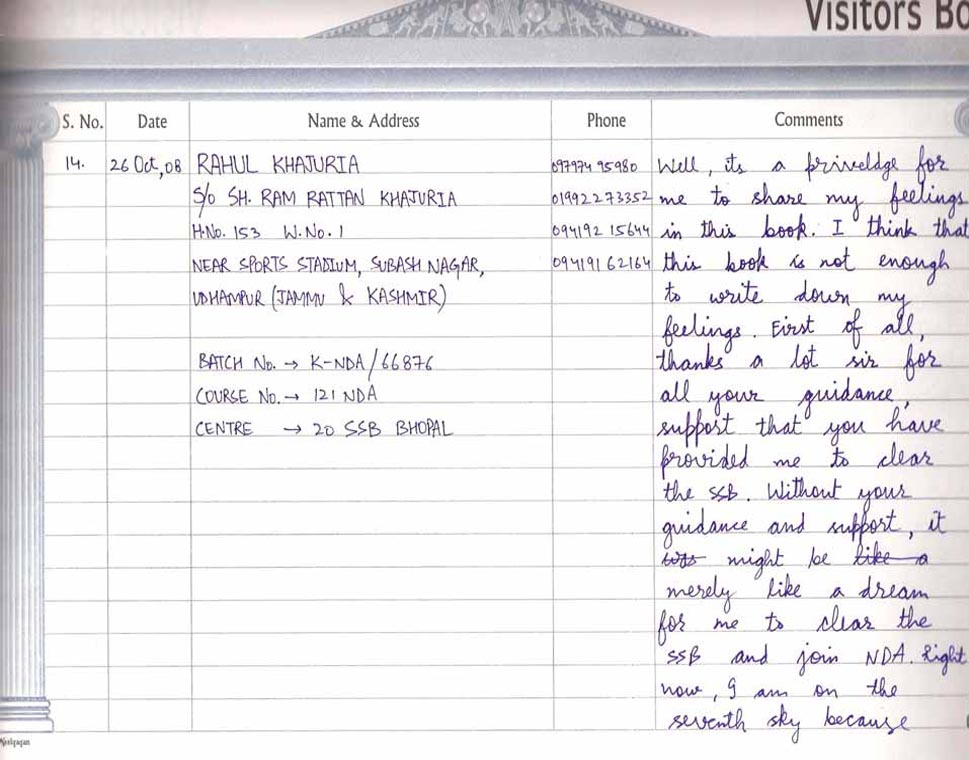 Visitors Bo
S. No. Date Name & Address Phone Comments
14. 26 Oct, 08 RAHUL KHAJURIA 097974 95980 Well, its a priveldge for
S/o SH. RAM RATTAN KHAJURIA 01992273352 me to share my feelings
H.No. 153 W.No. 1 094192 15644 in this book. I think that
NEAR SPORTS STADIUM, SUBASH NAGAR, 09419162164 this book is not enough
UDHAMPUR (JAMMU & KASHMIR) to write down my
feelings. First of all,
BATCH No. → K-NDA/66876 thanks a lot sir for
COURSE No. → 121 NDA all your guidance,
CENTRE → 20 SSB BHOPAL support that you have
provided me to clear
the SSB. Without your
guidance and support, it
was might be like a
merely like a dream
for me to clear the
SSB and join NDA. Right
now, I am on the
seventh sky because
Neelgagan